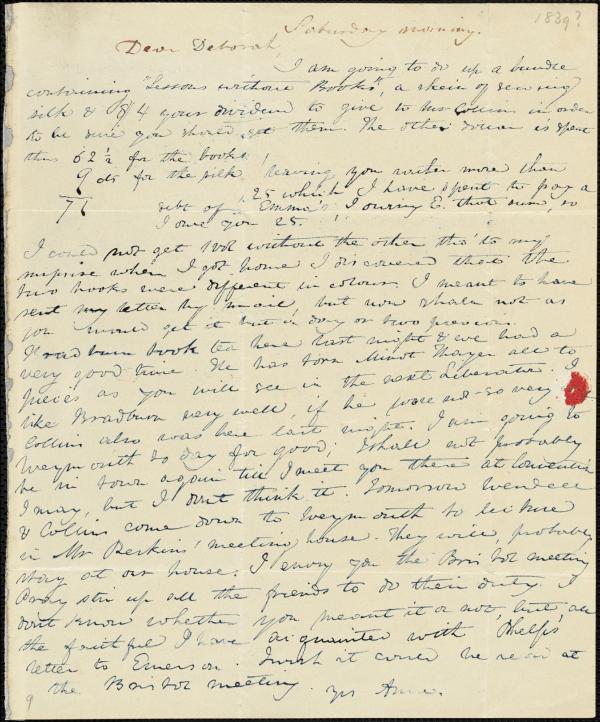 1839?
Saturday morning.
Dear Deborah,
I am going to do up a bundle
containing "Lessons without Books", a skein of sewing
silk & $4 your dividend to give to Mr Collins in order
to be sure you should get them. The other dollar is spent
thus 62½ for the books,
9 cts for the silk, leaving you rather more than
71
.25 which I have spent to pay a
debt of Emma's, I owing E. that sum, so
I owe you 25.
I could not get 1 vol without the other tho' to my
surprise when I got home I discovered that the
two books were different in colour. I meant to have
sent my letter by mail, but now shall not as
you would get it but a day or two previous.
Bradburn took tea here last night & we had a
very good time. He has torn Minot Thayer all to
pieces as you will see in the next Liberator. I
like Bradburn very well, if he were not so very
Collins also was here last night. I am going to
Weymouth to day for good, shall not probably
be in town again till I meet you there at Convention
I may, but I don't think it. Tomorrow Wendell
& Collins come down to Weymouth to lecture
in Mr Perkins' meeting house. They will, probably
stay at our house. I envy you the Bristol meeting
Pray stir up all the friends to do their duty. I
don't know whether you meant it or not, but all
the faithful I have acquainted with Phelps'
letter to Emerson. I wish it could be read at
the Bristol meeting. yrs Anne.
9